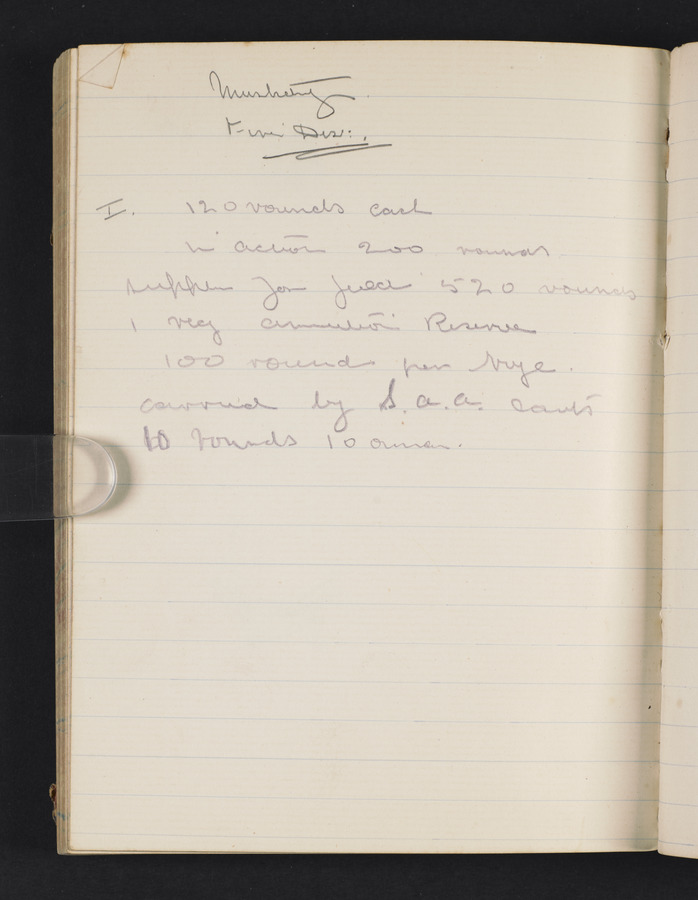 Musketry
Fire Dis:.
I. 120 rounds each
in action 200 rounds
supplen for field 520 rounds
1 reg ammution Reserve
100 rounds per
carried by S.a.a. carts
10 rounds 10